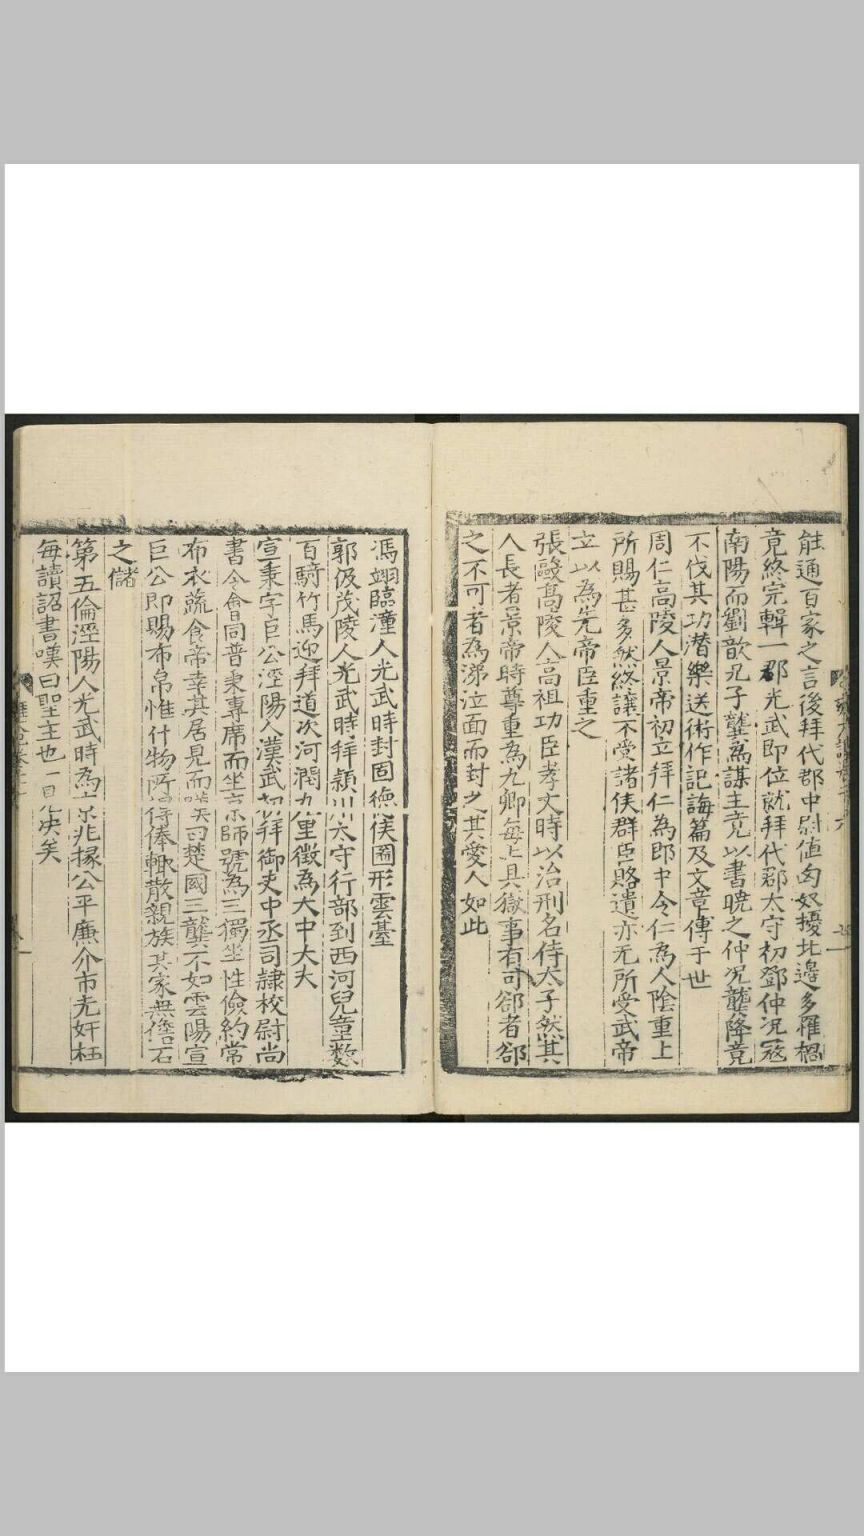 能通百家之言後拜代郡中尉値匈奴擾北邊多罹禍
竟終完輯一郡光武即位就拜代郡太守初鄧仲况冦
南陽而劉歆兄子龔爲謀主竟以書曉之仲况龔降竟
不伐其功潜樂送術作記誨篇及文章傳于世
周仁高陵人景帝初立拜仁為郎中令仁為人陰重上
所賜甚多然終讓不受諸侯群臣賂遺亦无所受武帝
立以為先帝臣重之
張敺髙陵人高祖功臣孝文時以治刑名侍太子然其
人長者景帝時尊重為九卿每上具獄事有可郤者郤
之不可者為涕泣面而封之其愛人如此
馮翊臨潼人光武時封固德侯圖形雲臺
郭伋茂陵人光武時拜潁川太守行部到西河兒童数
百騎竹馬迎拜道次河潤九里徵為大中大夫
宣秉字巨公涇陽人漢武初拜御史中丞司隷校尉尚
書令會同普秉專席而坐京師號為三獨坐性儉約常
布衣蔬食帝幸其居見而嘆曰楚國三龔不如雲陽宣
巨公即賜布帛惟什物所得俸輙散親族其家無儋石
之儲
第五倫涇陽人光武時為京兆掾公平廉介市无奸枉
每讀詔書嘆曰聖主也一見决矣